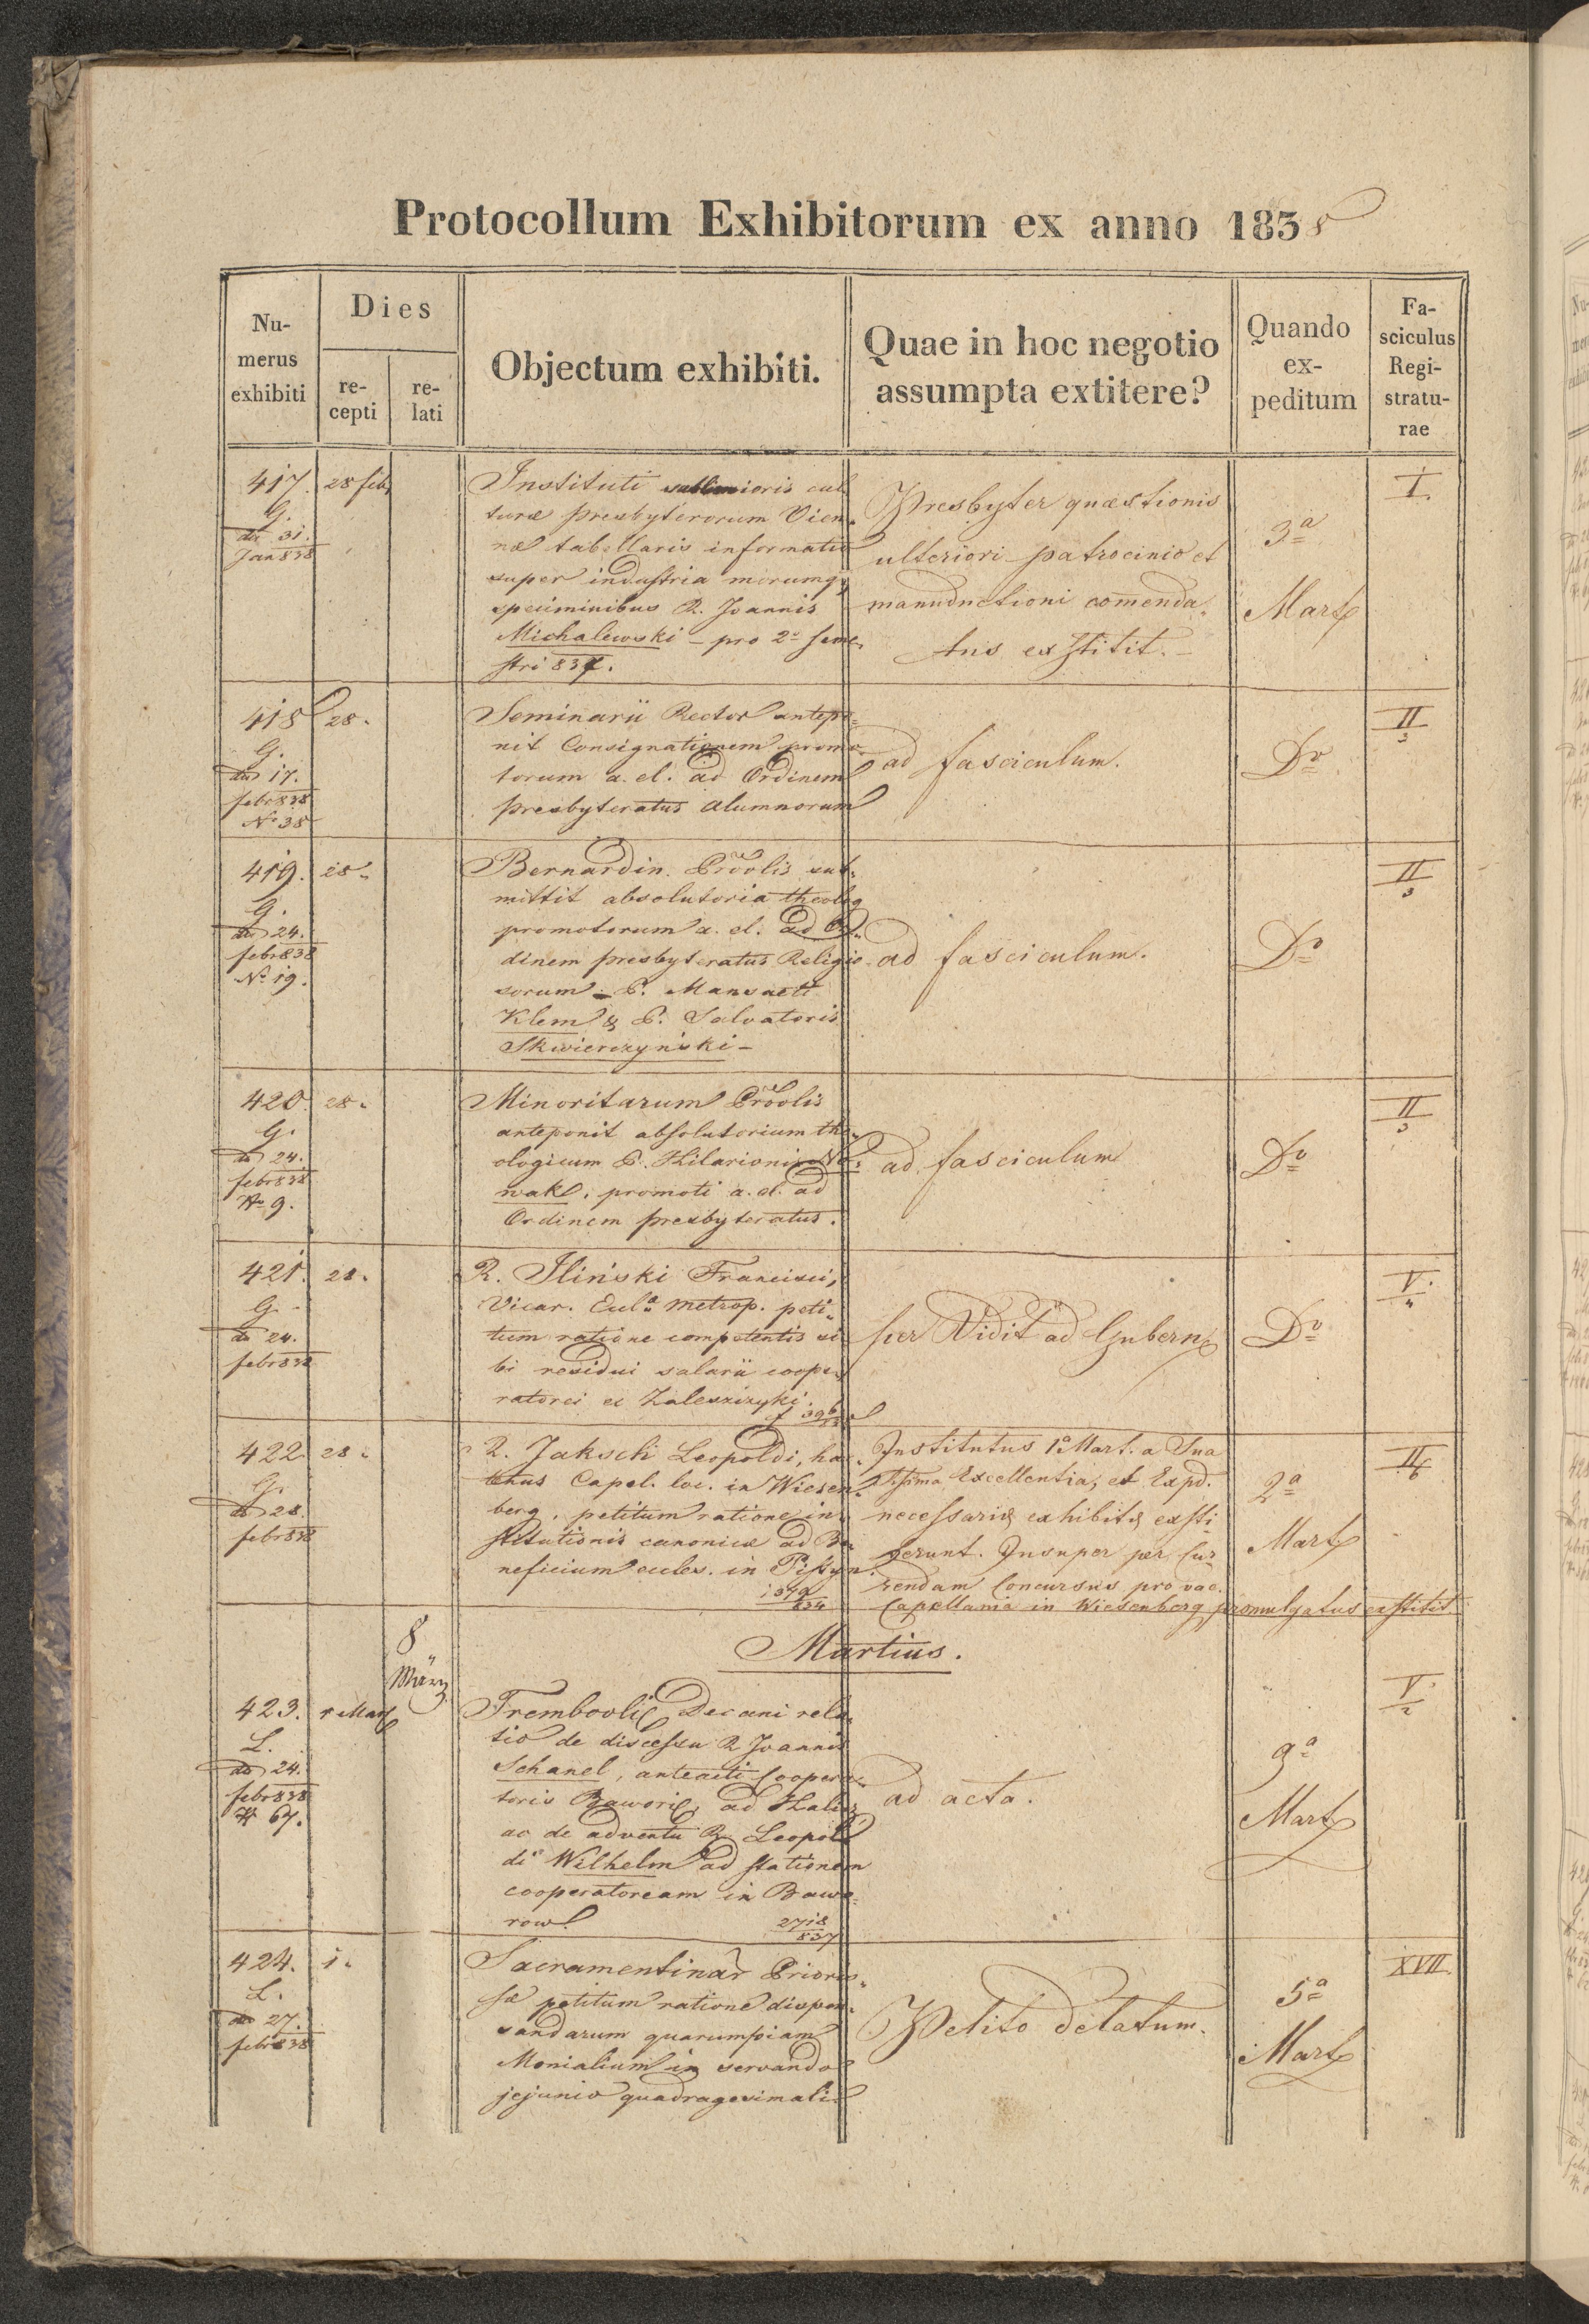 Protocollum Exhibitorum ex anno 1838
Nu-
merus
exhibiti
Dies
re-
cepti
re-
lati
Objectum exhibiti.
Quae in hoc negotio
assumpta extitere?
Quando
ex-
peditum
Fa-
sciculus
Regi-
stratu-
rae
417.
G.
dto 31.
Jan 838
28 feb
Instituti sublimioris cul
turæ presbyterorum Vien-
næ tabellaris informatio
super industria morumq
speciminibus R. Joannis
Michalewski – pro 2o seme-
stri 837.
Presbyter quæstionis
ulteriori patrocinio et
manuductioni comenda-
tus exstitit.
3a
Mart
I.
418
G.
dto 17.
febr 838
No 38
28.
Seminarii Rector antepo-
nit Consignationem promo
torum a. el. ad Ordinem
presbyteratus Alumnorum
ad fasciculum.
Do
II
3
419.
G.
dto 24.
febr 838
No 19.
28.
Bernardin. Provlis sub-
mittit absolutoria theolog
promotorum a. el. ad Or-
dinem presbyteratus Religio
sorum – P. Mansueti
Klem & P. Salvatoris
Skwierczyński –
ad fasciculum.
Do
II
3
420.
G.
dto 24.
febr 838
No 9.
28.
Minoritarum Provlis
anteponit absolutorium the-
ologicum P. Hilarioni No-
wak, promoti a. el. ad
Ordinem presbyteratus.
ad fasciculum
Do
II
3
421.
G.
dto 24.
febr 838
28.
R. Iliński Francisci,
Vicar. Ecclæ metrop. peti-
tum ratione competentis si
bi residui salarii coope-
ratorei ex Zaleszczyki.
per Vidit ad Gubern
Do
V.
422
G.
dto 28.
febr 838
28.
R. Jaksch Leopoldi, hac-
tenus Capel. loc. in Wiesen-
berg, petitum ratione in-
stitutionis canonicæ ad Be
neficium eccles. in Pistyn.
834
Institutus 1a Mart. a Sua
Excellentia, et Expd.
necessariæ exhibitæ exsti-
terunt. Insuper per Cur-
rendam Concursus pro vac.
Capellania in Wiesenberg promulgatus exstitit.
2a
Mart
II
6
8
März
Martius.
423.
L.
dto 24.
febr 838
No 67.
1 Mart
Trembovliæ Decani rela-
tio de discessu R Joannis
Schanel, anteacti Coopera-
toris Baworiæ, ad Halicz
ac de adventu R. Leopol
di Wilhelm ad stationem
cooperatoream in Bawo-
row
2718
837
ad acta.
9a
Mart
V.
2
424.
L.
dto 27.
febr 838
1.
Sacramentinar Prioris-
sæ petitum ratione dispen-
sandarum quarumpiam
Monialium in servando
jejunio quadragesimali
Petito delatum.
5a
Mart
XVII.